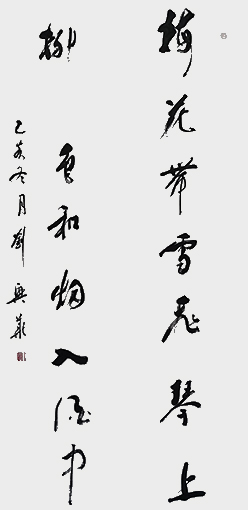 梅花带雪飞琴上
柳
色和烟入酒中
己亥冬月刘兴华